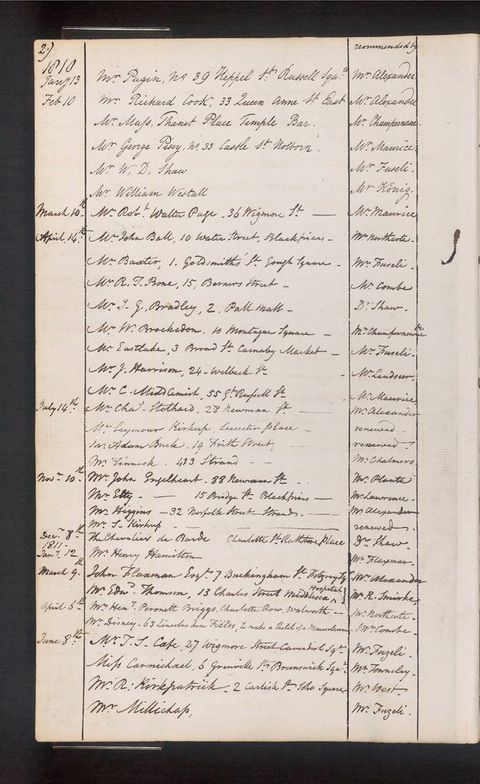 2) recommended by
1810
Jany 13 Mr Pugin, No 39 Keppel St Russell Squre Mr Alexander
Feb 10 Mr Richard Cook, 33 Queen Anne St East Mr Alexander
Mr Thanet Place Temple Bar. Mr Champernowne
Mr George Perry, No 33 Castle St Holborn Mr Maurice
Mr W. D. Shaw Mr Fuseli
Mr William Westall Mr König
March 10th Mr Robt Walter Page. 36 Wigmore St — Mr Maurice
April 14th Mr John Ball, 10 Water Street, Blackfriars — Mr Northcote
Mr Baxter, 1. Goldsmith St Gough Square - Mr Fuseli
Mr R. T. Bone, 15, Berners Street - Mr Combe
Mr J. G. Bradley, 2. Pall Mall - Dr Shaw
Mr W. Brockedon. 10 Montague Square - Mr Champernowne
Mr Eastlake, 3 Broad St Carnaby Market - Mr Fuseli
Mr J. Harrison, 24 Welbeck St - Mr Landseer
Mr C. Middlemist, 55 Gt Russell St Mr Maurice
July 14th Mr Chas Stothard, 28 Newman St - Mr Alexander
Mr Seymour Kirkup Leicester Place - renewed
Mr Adam Buck 19 Frith Street, renewed
Mr Finnock 483 Strand - - Mr Chalmers
Novr 10th Mr John Engelheart. 88 Newman St - Mr Planta
Mr Etty - — 15 Bridge St Blackfriars — Mr Lawrence
Mr Higgins — 32 Norfolk Street Strand - Mr Alexander
Mr S. Kirkup - - renewed
Decr 8th The Chevalier de Barde Charlotte St Rathbone Place Dr Shaw
1811
Jany 12 Mr Henry Hamilton Mr Flaxman
March 9th John Flaxman Esqr 7 Buckingham St Fitzroy Sq Mr Alexander
Mr Edwd Thomson, 13 Charles Street Middlesex Hospital Mr R. Smirke
April 8th Mr Heny Peronett Briggs, Charlotte Row, Walworth - Mr Northcote
Mr Disney - 63 Lincolns Inn Fields, to make a Mausoleum Mr Combe
June 8th Mr T. S. Cafe, 27 Wigmore Street Cavendish Sqre Mr Fuzeli
Miss Carmichael, 6 Grenville St Brunswick Sqre Mr Townley
Mr R. Kirkpatrick - 2 Carlisle St Soho Square Mr West
Mr Millichap, Mr Fuzeli